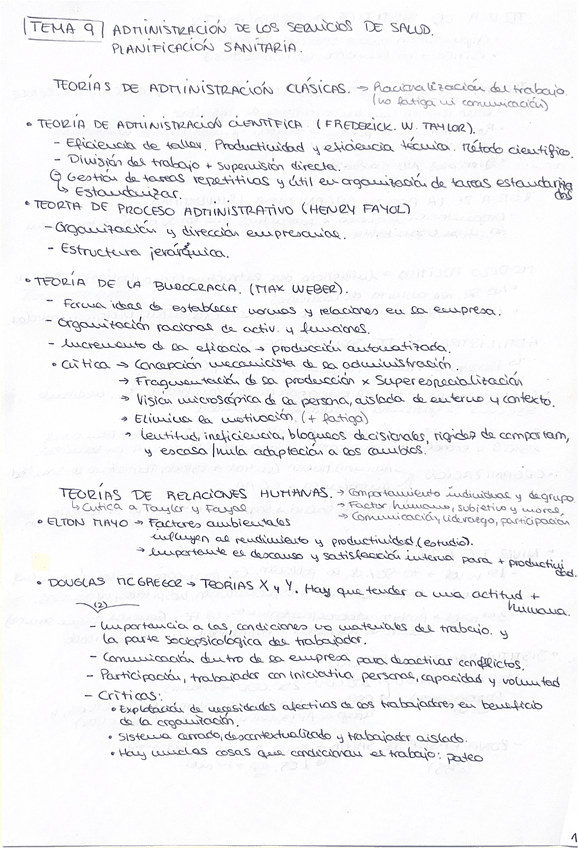 TEMA 9 ADMINISTRACIÓN DE LOS SERVICIOS DE SALUD.
PLANIFICACIÓN SANITARIA.
TEORÍAS DE ADMINISTRACIÓN CLÁSICAS. → Racionalización del trabajo
(no fatiga ni comunicación)
• TEORÍA DE ADMINISTRACIÓN CIENTÍFICA. (FREDERICK. W. TAYLOR).
- Eficiencia de taller. Productividad y eficiencia técnica. Método científico.
- División del trabajo + supervisión directa.
↳ Gestión de tareas repetitivas y útil en organización de tareas estandarizadas
↳ Estandarizar.
• TEORÍA DE PROCESO ADMINISTRATIVO (HENRY FAYOL)
- Organización y dirección empresarial.
- Estructura jerárquica.
• TEORÍA DE LA BUROCRACIA. (MAX WEBER).
- Forma ideal de establecer normas y relaciones en la empresa.
- Organización racional de activ. y funciones.
- Incremento de la eficacia → producción automatizada.
• Crítica → Concepción mecanicista de la administración.
→ Fragmentación de la producción x Superespecialización
→ Visión microscópica de la persona, aislada de entorno y contexto.
→ Elimina la motivación. (+ fatiga)
→ Lentitud, ineficiencia, bloqueos decisionales, rigidez de comportam,
y escasa/nula adaptación a los cambios.
TEORÍAS DE RELACIONES HUMANAS. → Comportamiento individual y de grupo
↳ Crítica a Taylor y Fayol → Factor humano, subjetivo y moral,
→ Comunicación, liderazgo, participación
• ELTON MAYO → Factores ambientales
influyen al rendimiento y productividad (estudio).
→ Importante el descanso y satisfacción interna para + productividad.
• DOUGLAS MCGREGOR → TEORÍAS X y Y. Hay que tender a una actitud +
humana.
(2)
- Importancia a las condiciones no materiales del trabajo. y
la parte sociopsicológica del trabajador.
- Comunicación dentro de la empresa para desactivar conflictos.
- Participación, trabajador con iniciativa personas, capacidad y voluntad
- Críticas:
• Explotación de necesidades afectivas de los trabajadores en beneficio
de la organización.
• Sistema cerrado, descontextualizado y trabajador aislado.
• Hay muchas cosas que condicionan el trabajo:
1